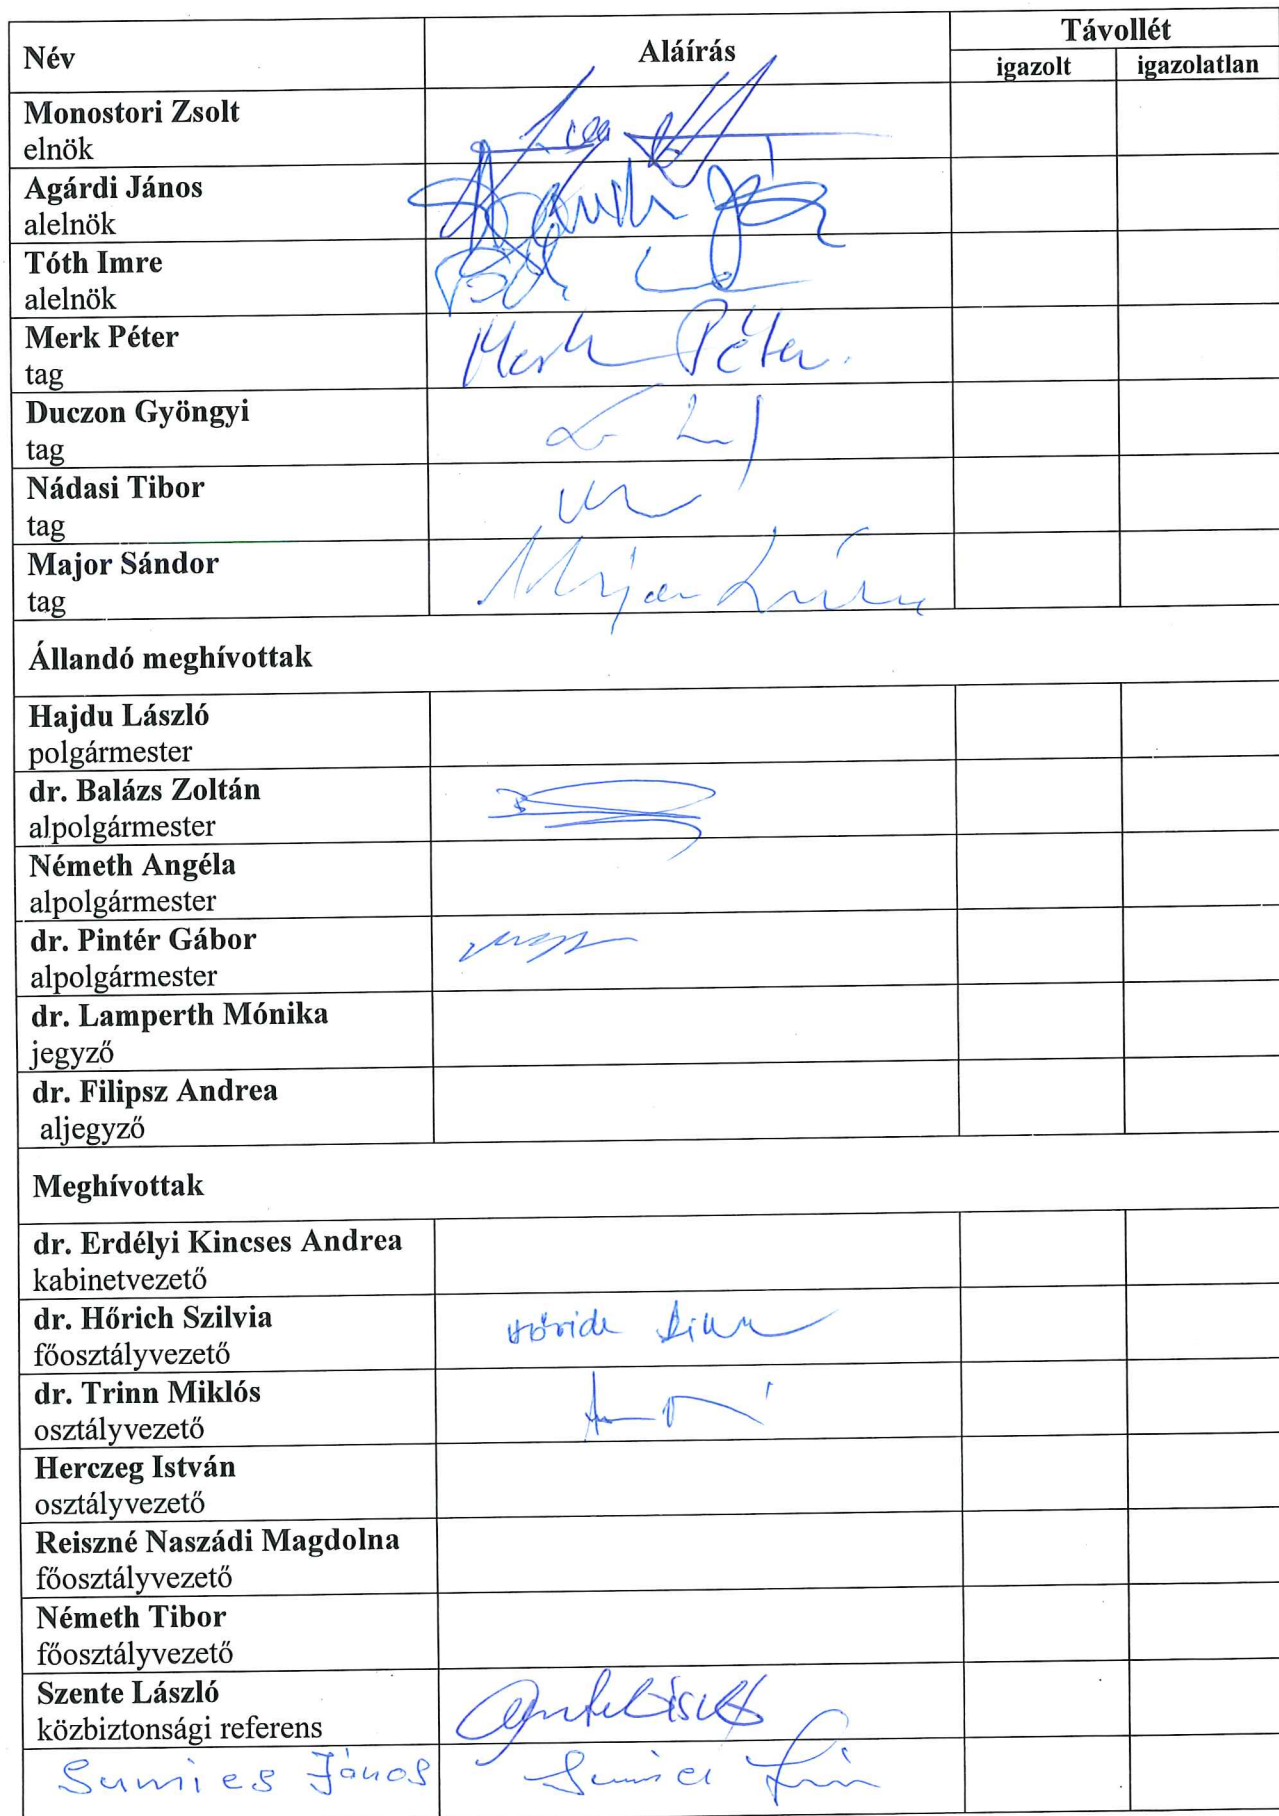 Név Aláírás Távollét
igazolt igazolatlan
Monostori Zsolt
elnök
Agárdi János
alelnök
Tóth Imre
alelnök
Merk Péter
tag
Merk Péter.
Duczon Gyöngyi
tag
Nádasi Tibor
tag
Major Sándor
tag
Major Sándor
Állandó meghívottak
Hajdu László
polgármester
dr. Balázs Zoltán
alpolgármester
Németh Angéla
alpolgármester
dr. Pintér Gábor
alpolgármester
dr. Lamperth Mónika
jegyző
dr. Filipsz Andrea
aljegyző
Meghívottak
dr. Erdélyi Kincses Andrea
kabinetvezető
dr. Hőrich Szilvia
főosztályvezető
dr. Trinn Miklós
osztályvezető
Herczeg István
osztályvezető
Reiszné Naszádi Magdolna
főosztályvezető
Németh Tibor
főosztályvezető
Szente László
közbiztonsági referens
János